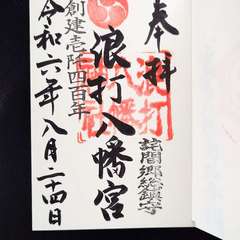 奉拝
詫間郷総鎮守
浪打八幡宮
創建壱阡四百年
令和六年八月二十四日